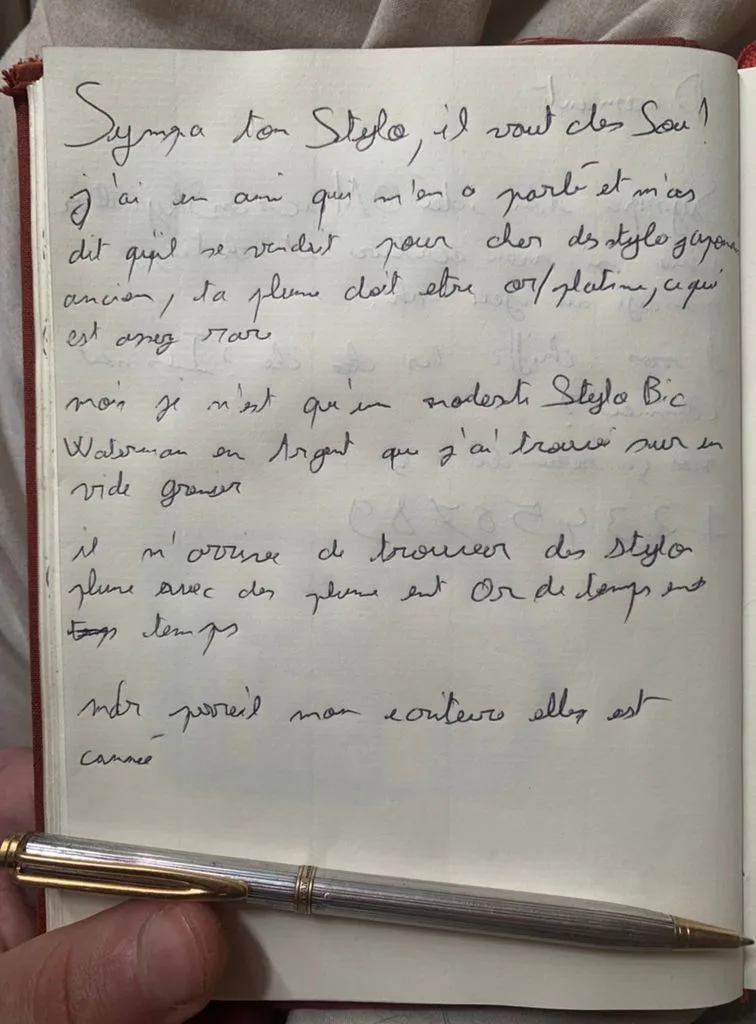 Sympa ton Stylo, il vaut des Sou !
j'ai un ami qui m'en a parlé et m'as
dit qu'il se vendait pour cher des stylo japonais
ancien, ta plume doit etre or/platine, ce qui
est assez rare
moi je n'est qu'un modeste Stylo Bic
Waterman en Argent que j'ai trouvé sur un
vide grenier
il m'arrive de trouver des stylo
plume avec des plume ent Or de temps en
temps
mdr pareil mon ecriture elles est
cannée